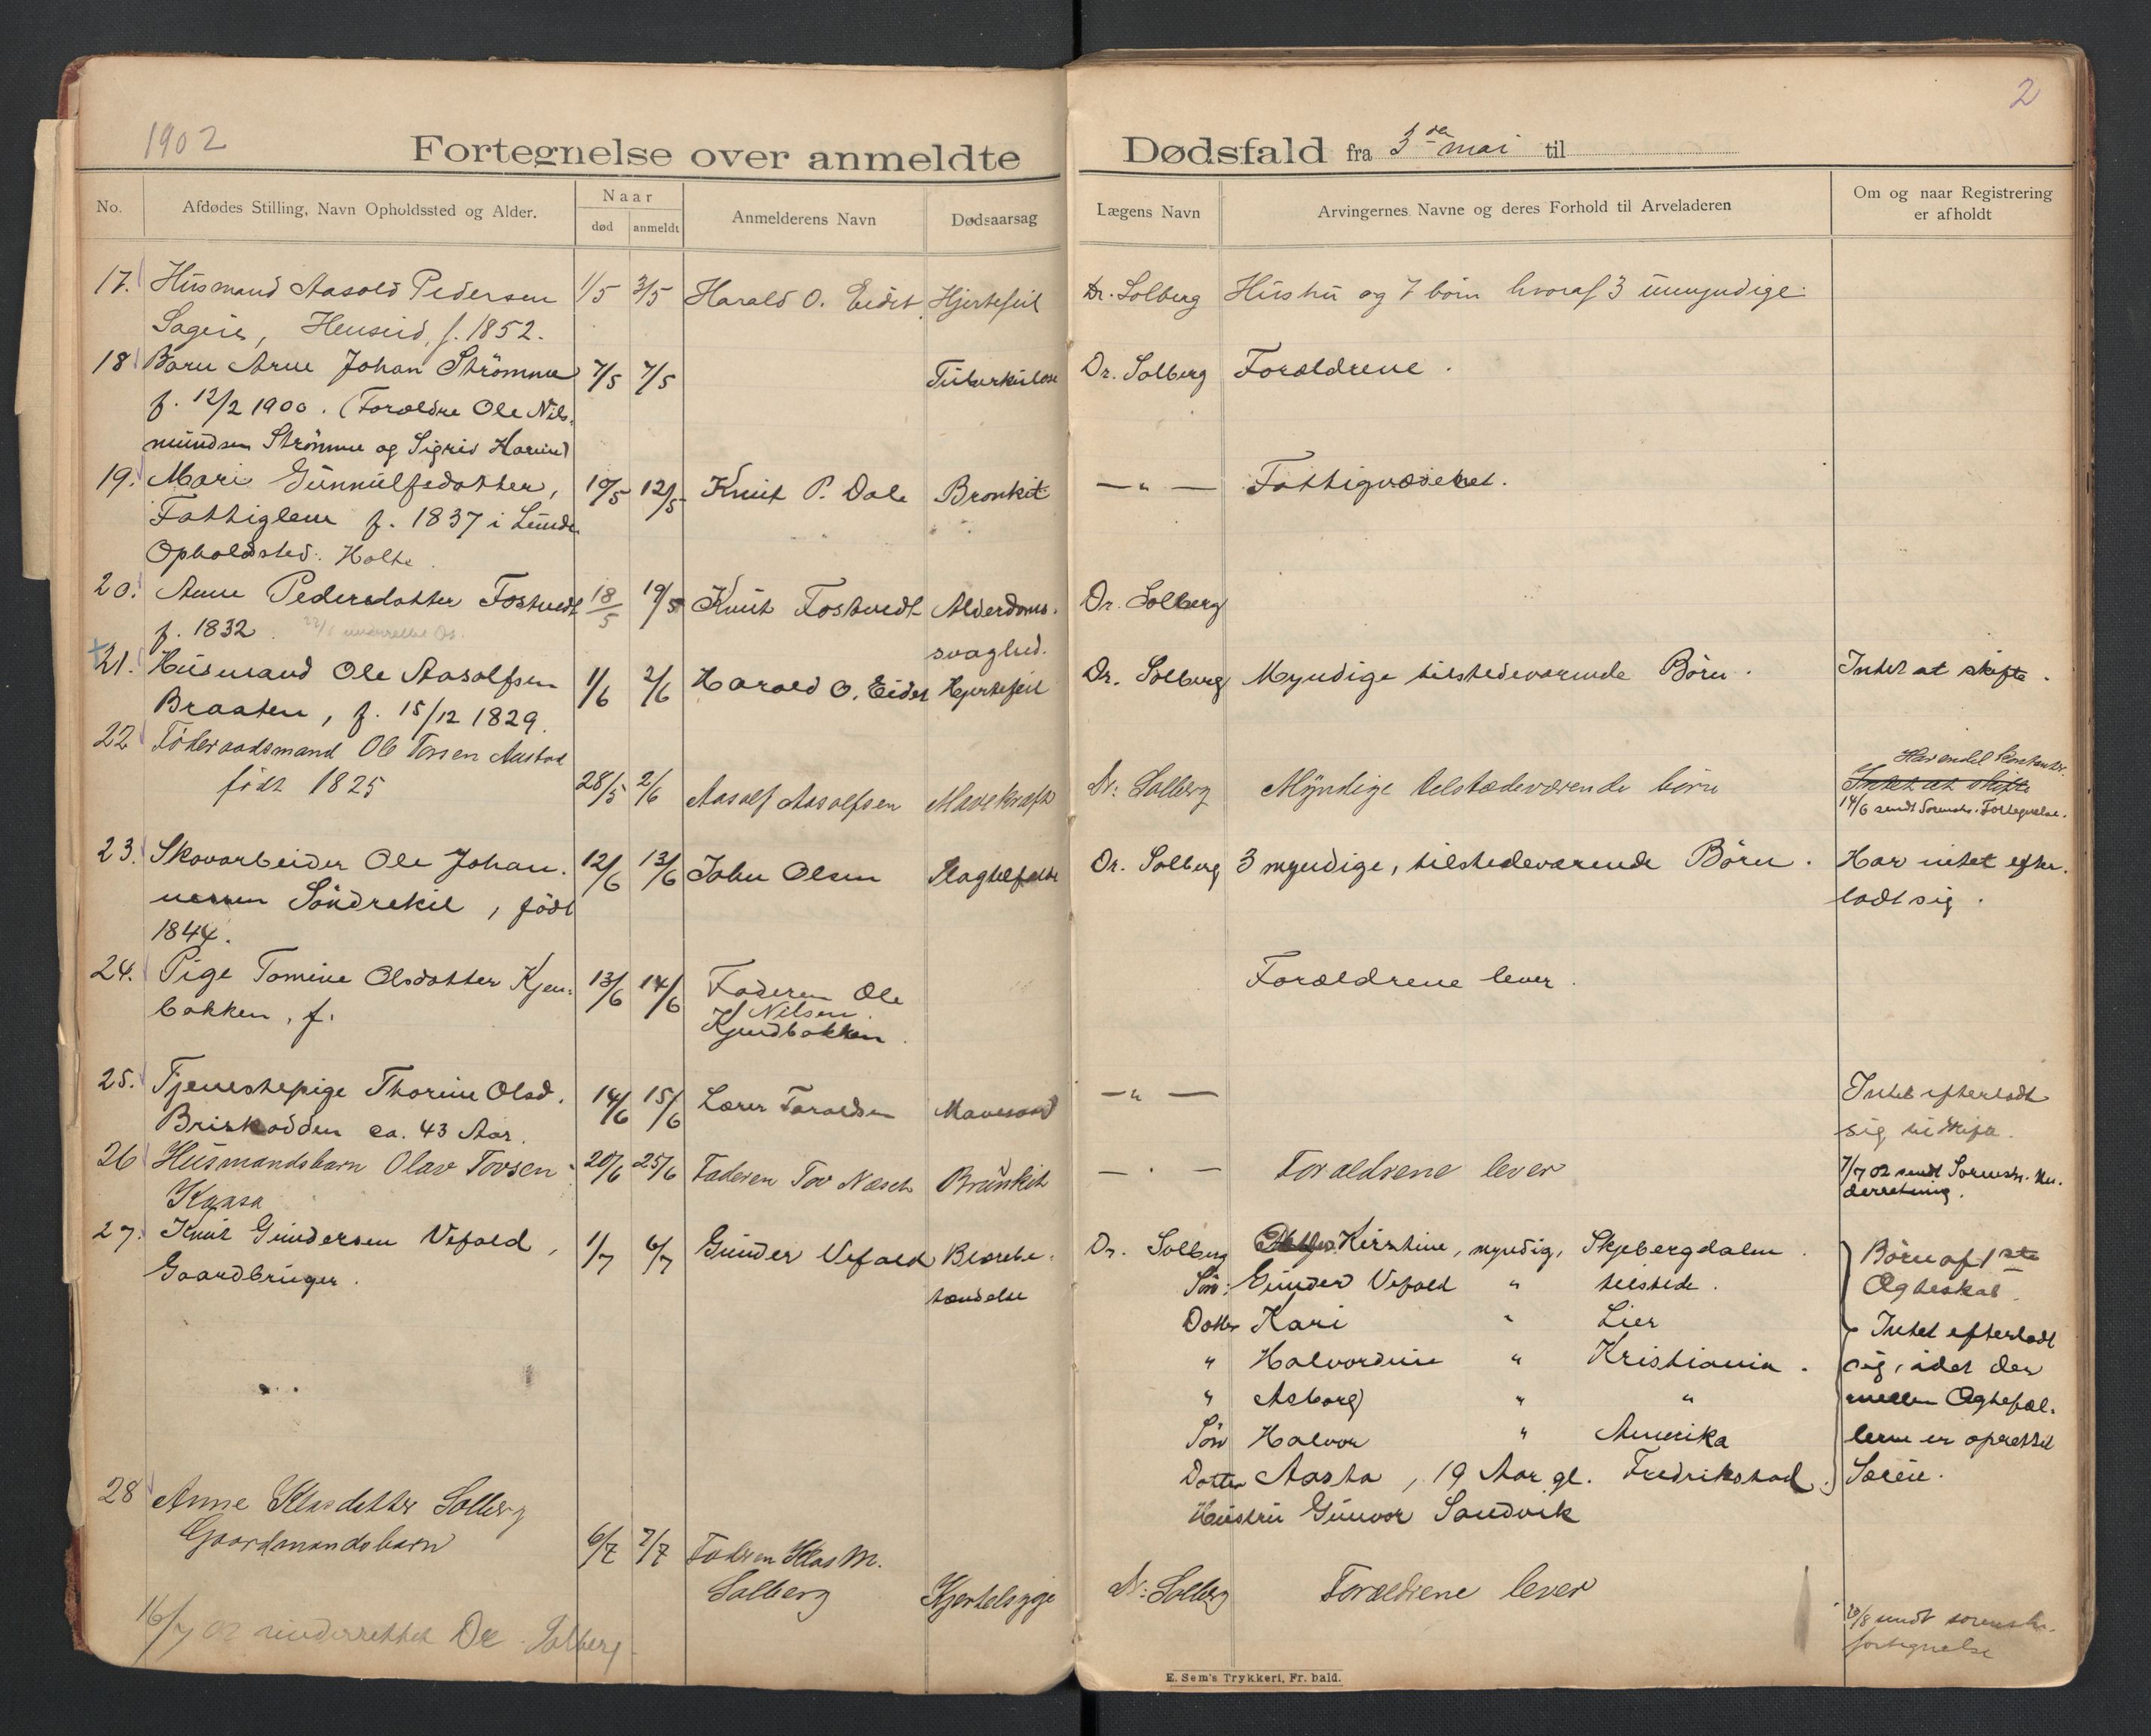 1902
2
Fortegnelse over anmeldte Dødsfald fra 3die mai til
No.
Afdødes Stilling, Navn Opholdssted og Alder.
Naar
død
anmeldt
Anmelderens Navn
Dødsaarsag
Lægens Navn
Arvingernes Navne og deres Forhold til Arveladeren
Om og naar Registrering
er afholdt
17. Husmand Aasold Pedersen 1/5 3/5 Harald O. Eidet Hjertefeil Dr. Solberg Hustru og 7 børn hvoraf 3 umyndige
f. 1852.
18 Barn Arne Johan Strömme 7/5 7/5 Tuberkulose Dr. Solberg Forældrene.
f. 12/2 1900. (Forældre Ole Nils-
mundsen Strömme og Sigrid Karine)
19. Mari Gunnulfsdatter, 10/5 12/5 Knut P. Dale Bronkit — " — Fattigvæsenet.
Fattiglem f. 1837 i Lunde
Opholdsted: Holte
20. Anne Pedersdatter Fostvedt 18/5 19/5 Knut Fostvedt Alderdoms- Dr. Solberg
f. 1832.
svaghed.
21. Husmand Ole Aasolfsen 1/6 2/6 Harald O. Eidet Hjertefeil Dr. Solberg Myndige tilstedeværende Børn. Intet at skifte.
Braaten, f. 15/12 1829.
22 Föderaadsmand Ole Tovsen
født 1825 28/5 2/6 Aasolf Aasolfsen Mavekræft Dr. Solberg Myndige tilstedeværende børn Intet at skifte
14/6 sendt Sorenskr. Fortegnelse.
23. Skovarbeider Ole Johan- 12/6 13/6 John Olsen Slagtilfælde Dr. Solberg 3 myndige, tilstedeværende Børn. Har intet efter-
nessen Söndrekil, født ladt sig.
1844.
24. Pige Tomine Olsdatter Kjen- 13/6 14/6 Faderen Ole Forældrene lever.
bakken, f.
Nilsen
Kjendbakken.
25. Tjenestepige Thorine Olsd. 14/6 15/6 Lærer Taraldsen Mavesaar — " — Intet efterladt
Briskodden ca. 43 Aar. sig til skifte.
26 Husmandsbarn Olav Tovsen 20/6 25/6 Faderen Tov Næset Brunkit — " — Forældrene lever 7/7 02 sendt Sorenskr. Un-
Kaasa derretning.
27. Knut Gundersen Vefald, 1/7 6/7 Gunder Vefald Blærebe- Dr. Solberg Kirstine, myndig, Skjebergdalen. Børn af 1ste
Gaardbruger. tændelse Søn: Gunder Vefald " tilstede. Ægteskab.
Datter Kari " Lier Intet efterladt
" Halvordine " Kristiania. sig, idet der
" Asborg " " mellem Ægtefæl-
Søn Halvor " Amerika lerne er oprettet
Datter Aasta, 19 Aar gl. Fredrikstad. Særeie.
Hustru Gunvor Sandvik
28 Anne Klasdatter Solberg
Gaardmandsbarn 6/7 7/7 Faderen Klas M.
Solberg Kjertelsyge Dr. Solberg Forældrene lever
16/7 02 underrettet Dr. Solberg.
20/8 sendt sorenskr.
fortegnelse
E. Sem's Trykkeri, Fr. hald.